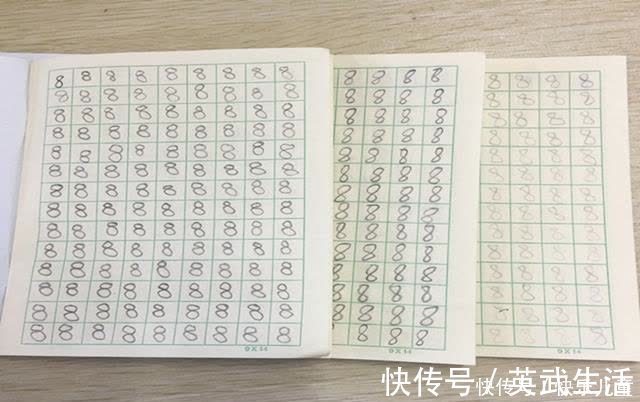 8 8 8 8 8 8 8 8 8
8 8 8 8 8 8 8 8 8
8 8 8 8 8 8 8 8 8
8 8 8 8 8 8 8 8 8
8 8 8 8 8 8 8 8 8
8 8 8 8 8 8 8 8 8
8 8 8 8 8 8 8 8 8
8 8 8 8 8 8 8 8 8
8 8 8 8 8 8 8 8 8
8 8 8 8 8 8 8 8 8
8 8 8 8 8 8 8 8 8
8 8 8 8 8 8 8 8 8
8 8 8 8 8 8 8 8 8
8 8 8 8 8 8 8 8 8
9×14
8 8 8 8
8 8 8 8
8 8 8 8
8 8 8 8
8 8 8 8
8 8 8 8
8 8 8 8
8 8 8 8
8 8 8 8
8 8 8 8
8 8 8 8
8 8 8 8
8 8 8 8
8 8 8
9×14
8 8 8 8
8 8 8 8
8 8 8 8
8 8 8 8
8 8 8 8
8 8 8 8
8 8 8 8
8 8 8 8
8 8 8 8
8 8 8 8
8 8 8 8
8 8 8 8
8 8 8
8 8 8 8
快传号 / 英武生活